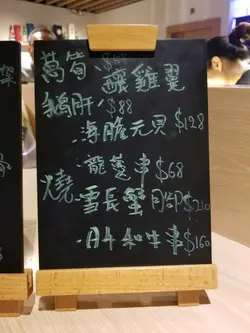 萵筍 $68
釀雞翼
鵝肝 $88
海膽元貝 $128
龍蔓串 $68
燒 雪長蟹 $210
A4和牛串 $160